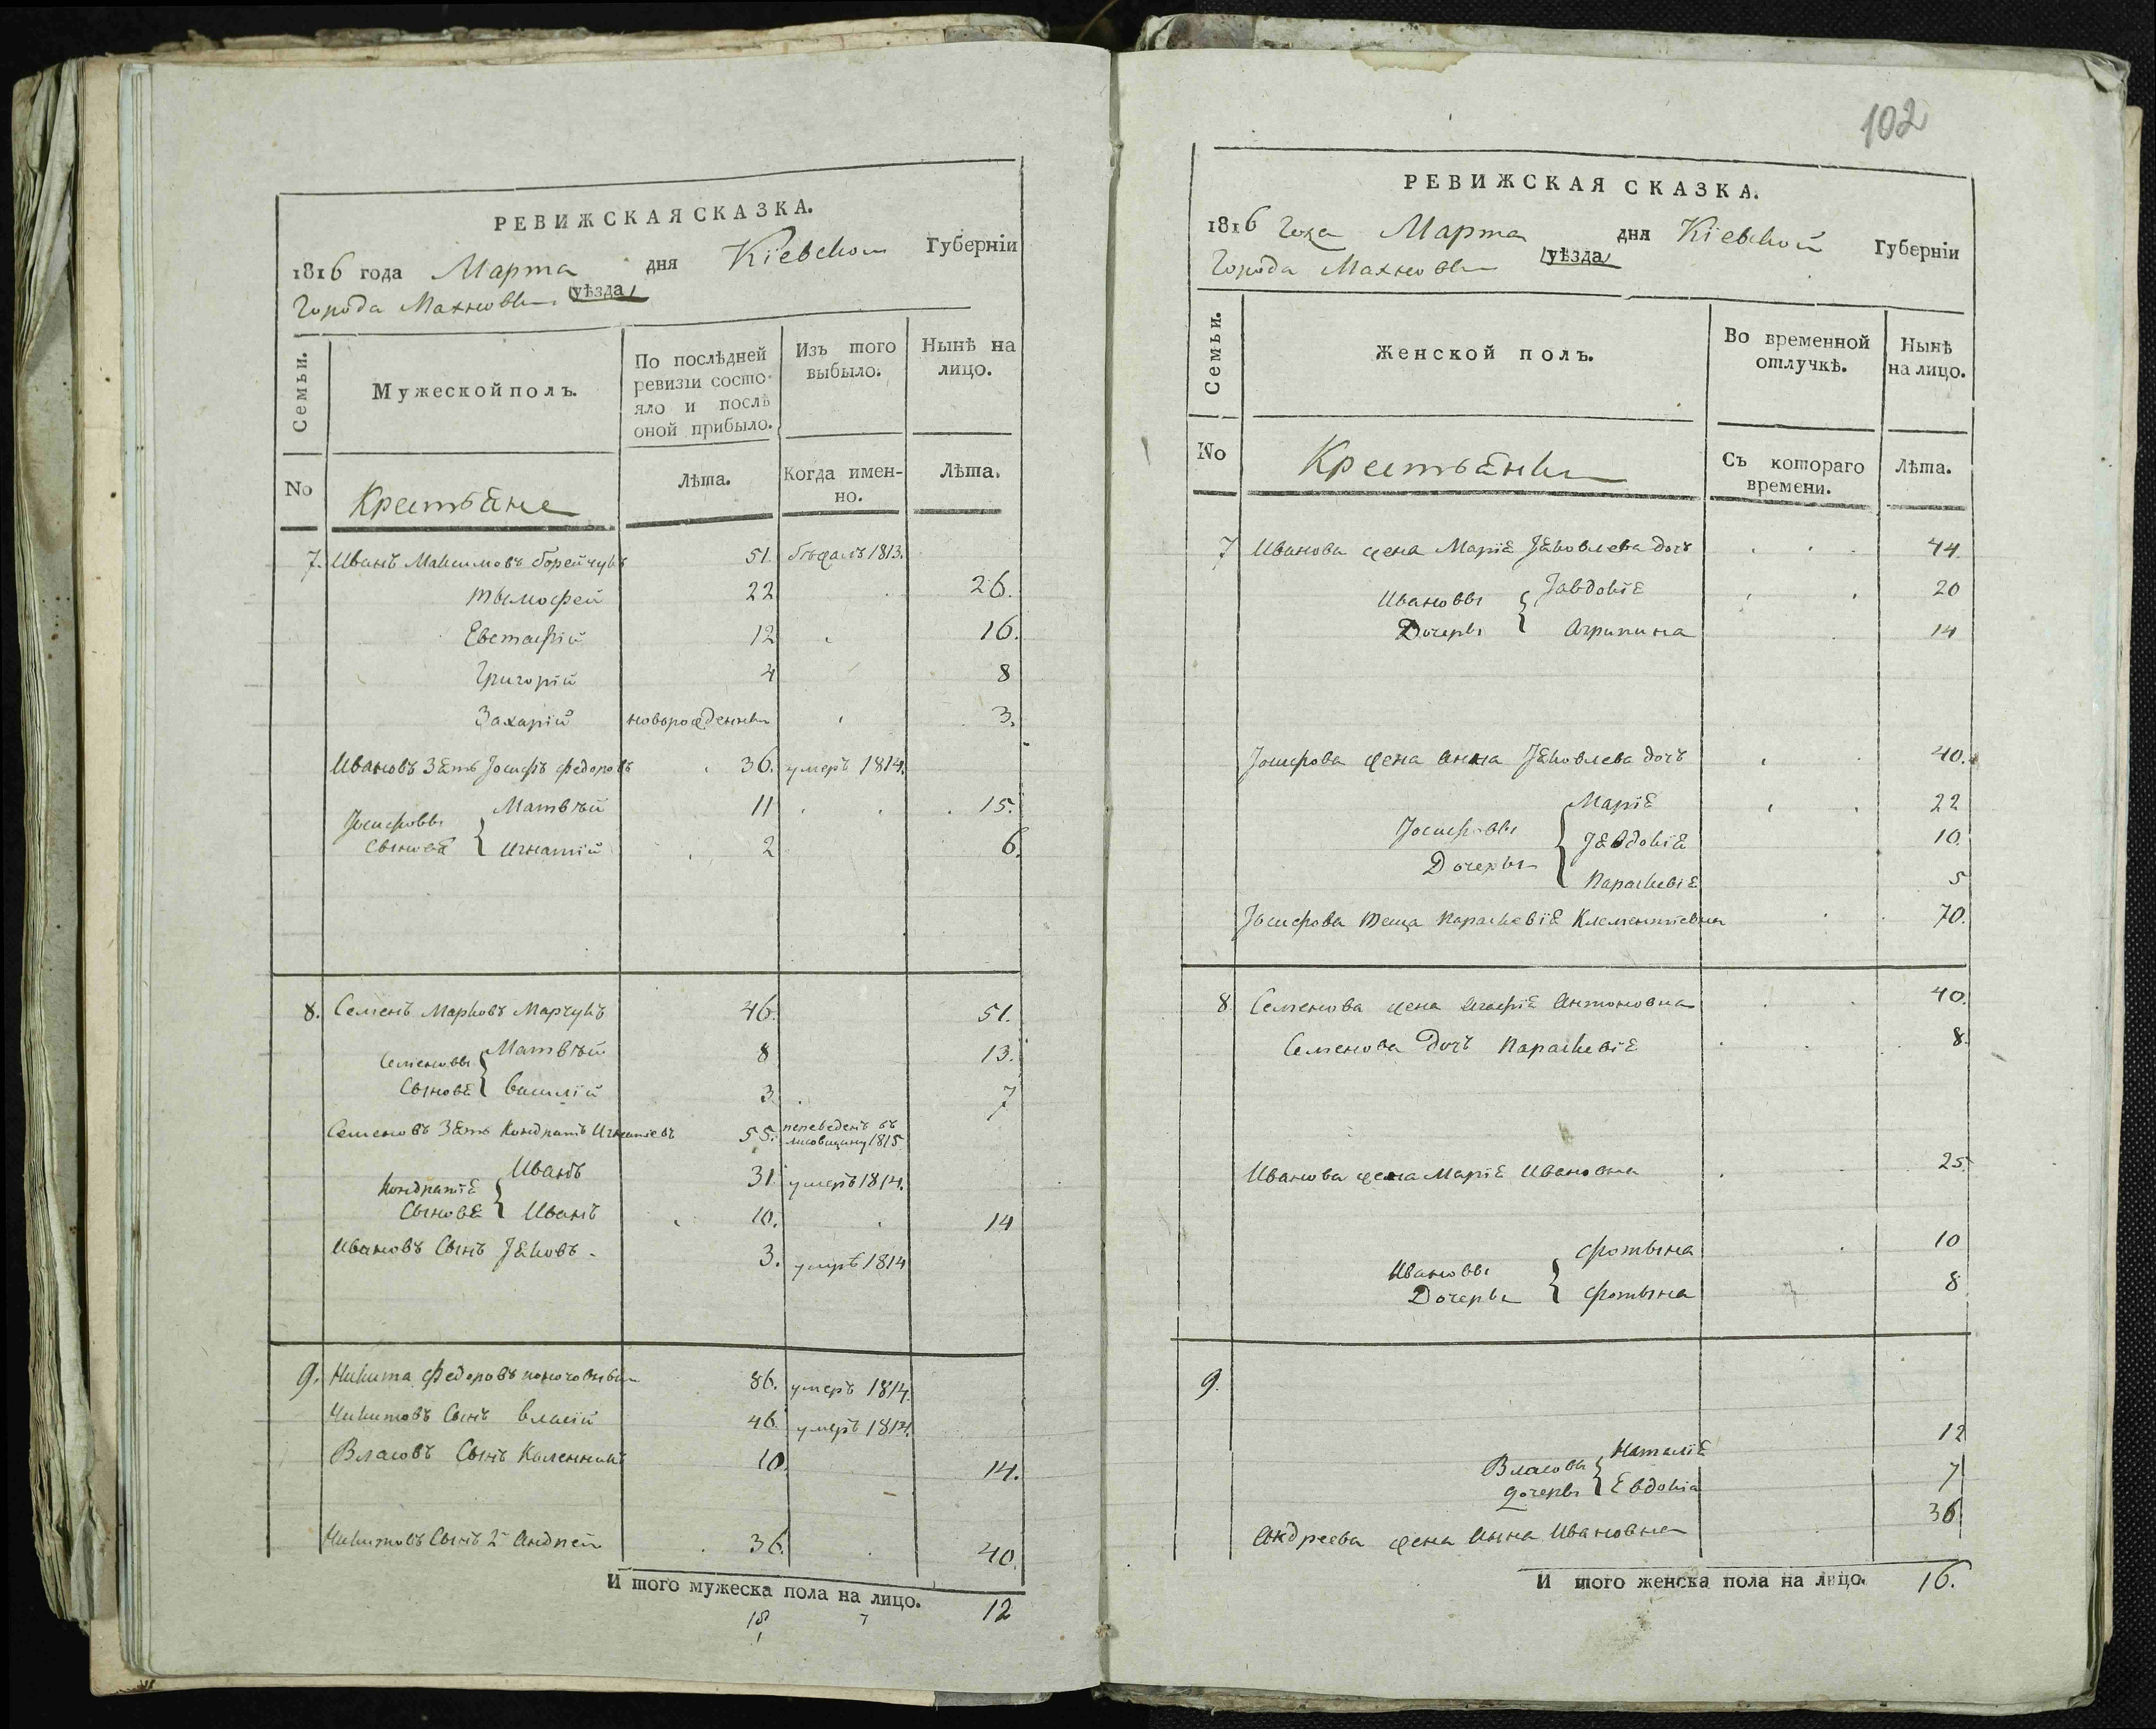 РЕВИЖСКАЯ СКАЗКА.
1816 года Марта дня Кіевской Губерніи
Города Махновки уѣзда
Семьи.
Мужеской полъ.
По послѣдней
ревизіи состо-
яло и послѣ
оной прибыло.
Изъ того
выбыло.
Нынѣ на
лицо.
No
Крестьяне
Лѣта.
Когда имен-
но.
Лѣта.
7. Иванъ Максимовъ 51. бѣжалъ 1813.
Тымофей 22 26.
Евстафій 12 16.
Григорій 4 8
Захарій новорожденны 3.
Ивановъ Зять Іосифъ Федоровъ 36. умеръ 1814.
Іосифовы
Сыновя
Матвѣй 11 15.
Игнатій 2 6.
8. Семенъ Марковъ Марчукъ 46. 51.
Семеновы
Сыновя
Матвѣй 8 13.
Василій 3 7
Семеновъ Зять Кондратъ Игнатіевъ 55. переведенъ въ
1815
Кондратія
Сыновя
Иванъ 31 умеръ 1814.
Иванъ 10. 14
Ивановъ Сынъ Яковъ 3. умеръ 1814
9. Никита Федоровъ 86. умеръ 1814.
Никитовъ Сынъ Власій 46. умеръ 1814.
Власовъ Сынъ Каленникъ 10. 14.
Никитовъ Сынъ 2й Андрей 36. 40.
И того мужеска пола на лицо. 12
18 7
1
102
РЕВИЖСКАЯ СКАЗКА.
1816 Года Марта дня Кіевской Губерніи
Города Махновки уѣзда
Семьи.
Женской полъ.
Во временной
отлучкѣ.
Нынѣ
на лицо.
No
Крестьянки
Съ котораго
времени.
Лѣта.
7 Иванова жена Марія Яковлева дочъ 44.
Ивановы
Дочеры
Іавдокія 20
Агрипина 14
Іосифова жена Анна Яковлева дочъ 40.
Іосифовы
Дочеры
Марія 22
Явдокія 10.
Параскевія 5
Іосифова Теща Параскевія Клементіевна 70.
8 Семенова жена Агафія Антоновна 40.
Семенова Дочъ Параскевія 8.
Иванова жена Марія Ивановна 25.
Ивановы
Дочеры
Фотына 10
Фотына 8
9.
Власовы
дочеры
Наталія 12
Евдокія 7
Андреева жена Анна Ивановна 36.
И того женска пола на лицо. 16.